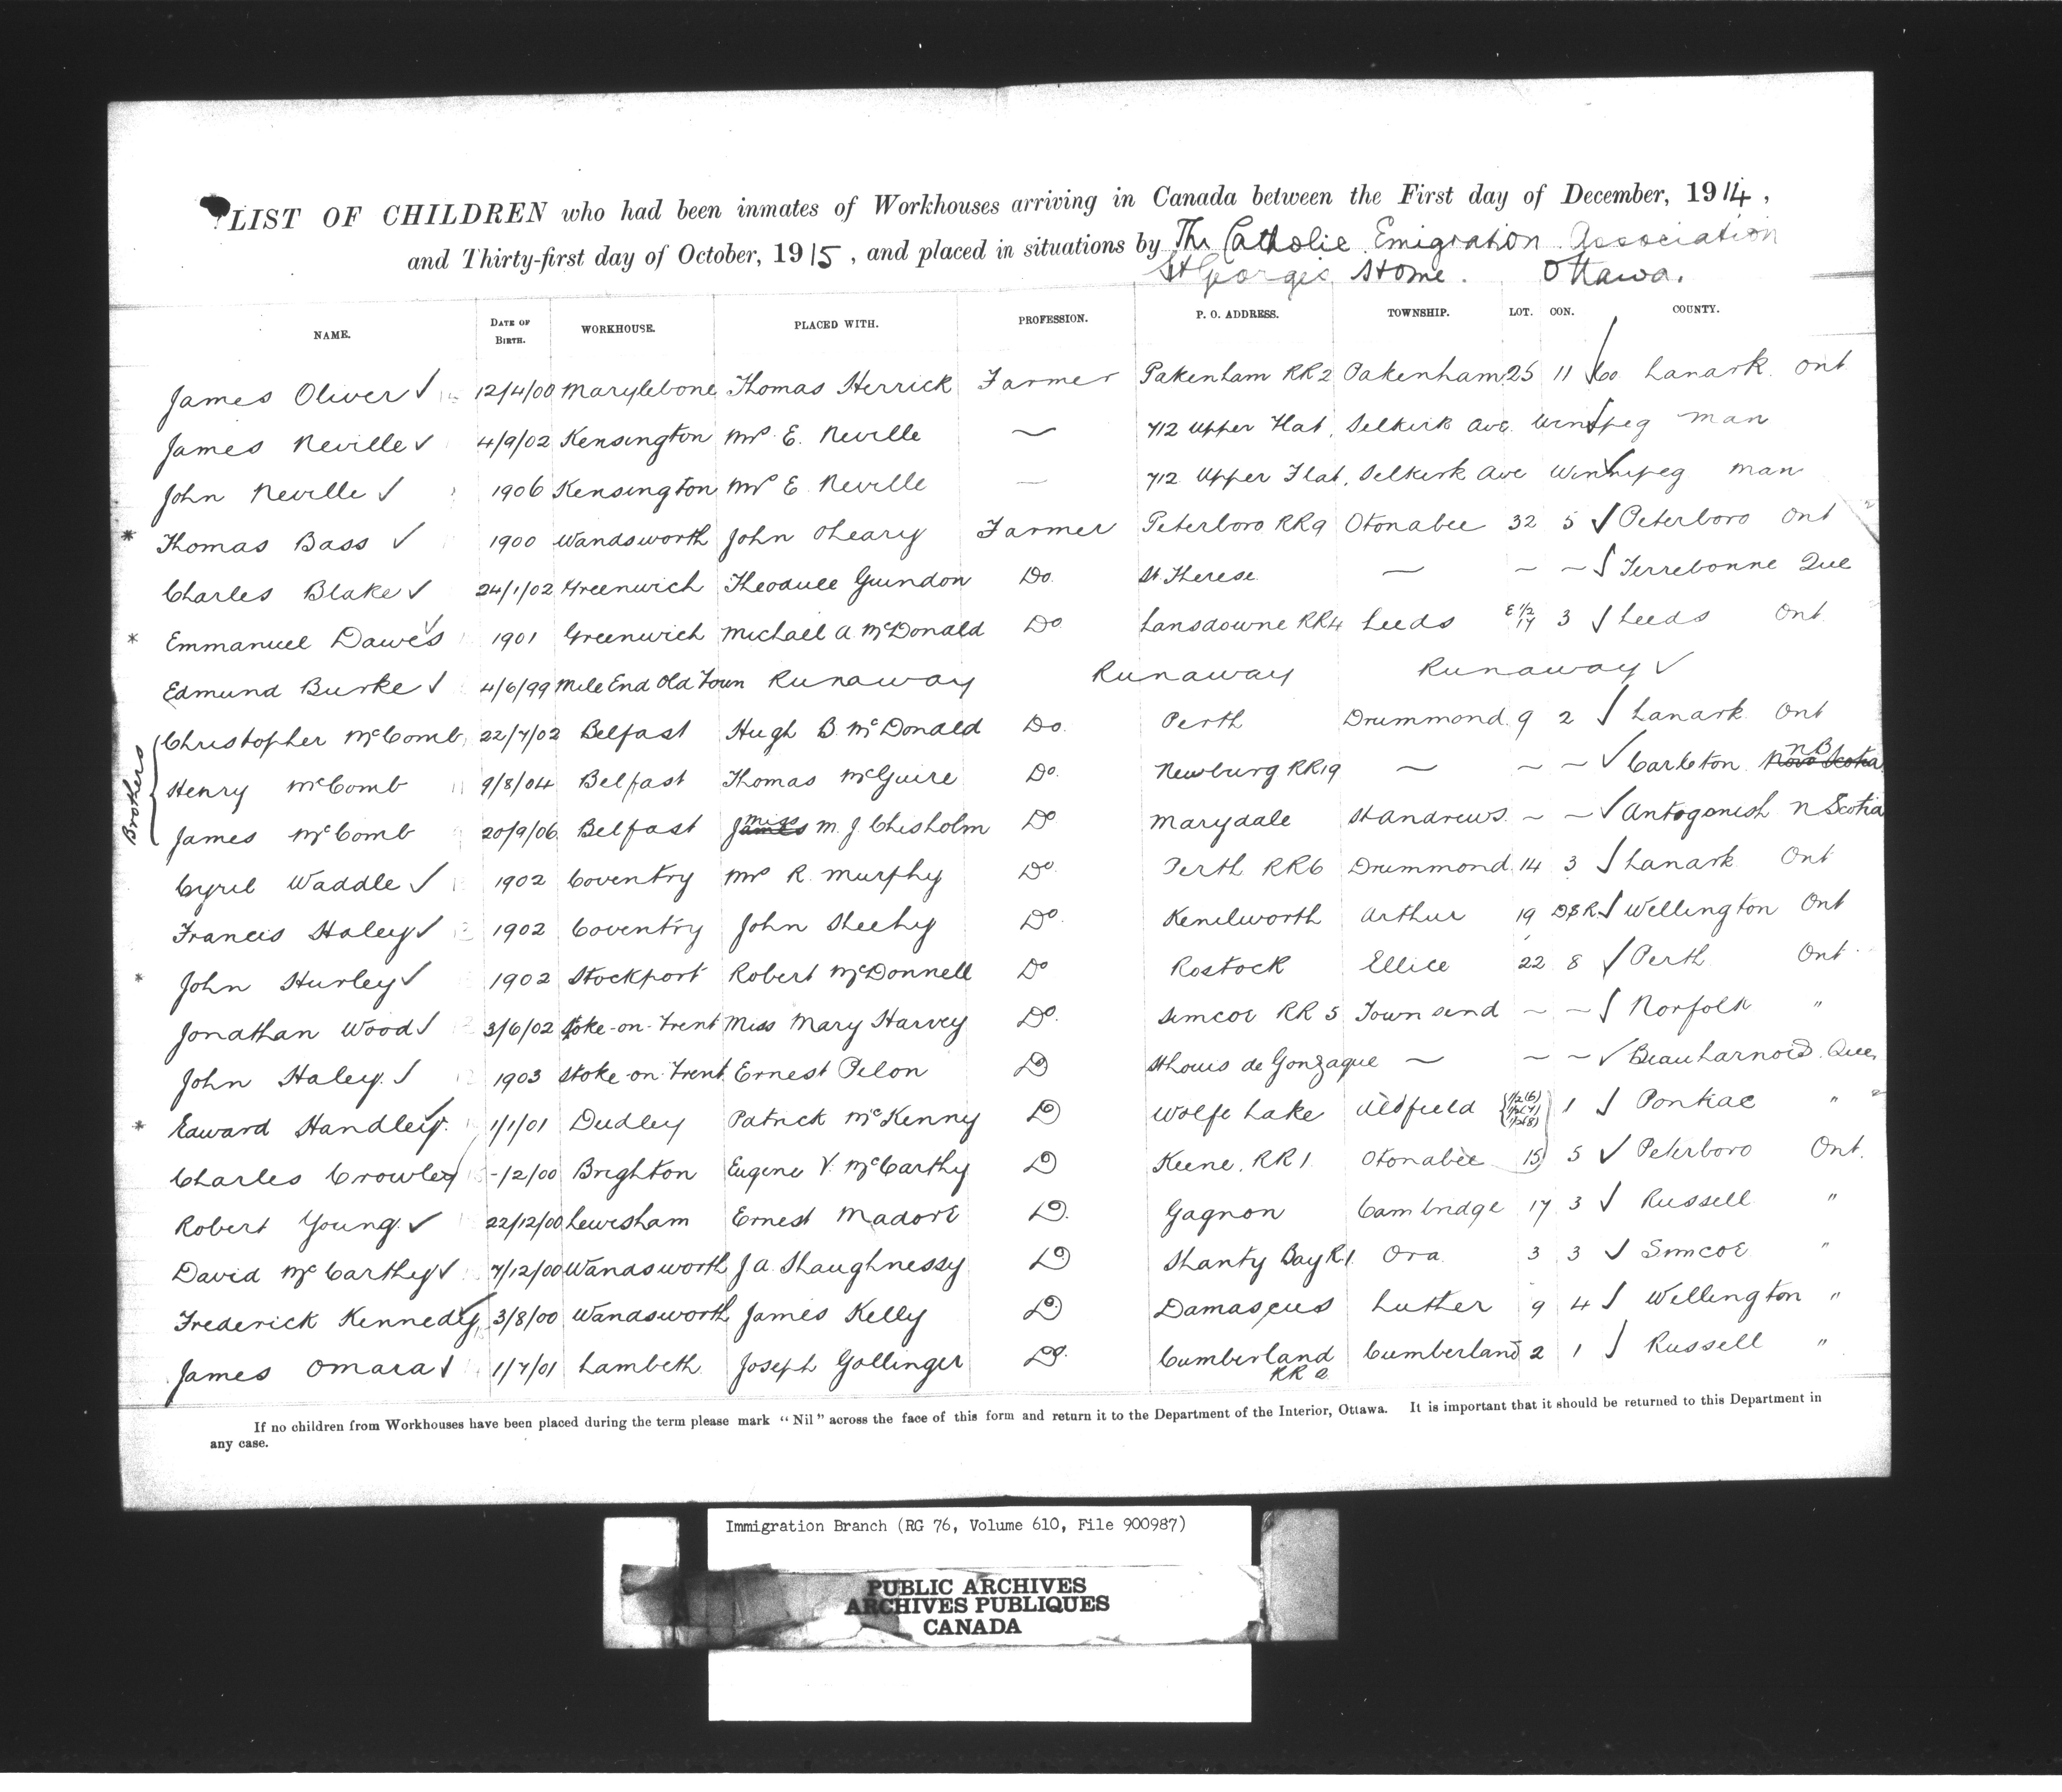 LIST OF CHILDREN who had been inmates of Workhouses arriving in Canada between the First day of December, 1914,
and Thirty-first day of October, 1915, and placed in situations by The Catholic Emigration Association
St George's Home. Ottawa.
NAME. DATE OF BIRTH. WORKHOUSE. PLACED WITH. PROFESSION. P. O. ADDRESS. TOWNSHIP. LOT. CON. COUNTY.
James Oliver ✓ 12/4/00 Marylebone Thomas Herrick Farmer Pakenham RR2 Pakenham 25 11 ✓ Co Lanark Ont
James Neville ✓ 4/9/02 Kensington Mrs E. Neville — 712 Upper Flat, Selkirk Ave Winnipeg Man
John Neville ✓ 1906 Kensington Mrs E Neville — 712 Upper Flat, Selkirk Ave Winnipeg Man
* Thomas Bass ✓ 1900 Wandsworth John OLeary Farmer Peterboro RR9 Otonabee 32 5 ✓ Peterboro Ont
Charles Blake ✓ 24/1/02 Greenwich Theodule Guindon Do. St. Therese — — — ✓ Terrebonne Que
* Emmanuel Dawes ✓ 1901 Greenwich Michael A. McDonald Do Lansdowne RR4 Leeds E 1/2 17 3 ✓ Leeds Ont
Edmund Burke ✓ 4/6/99 Mile End Old Town Runaway Runaway Runaway ✓
Brothers
Christopher McComb 22/7/02 Belfast Hugh B. McDonald Do. Perth Drummond 9 2 ✓ Lanark Ont
Henry McComb 9/8/04 Belfast Thomas McGuire Do. Newburg RR19 — — — ✓ Carleton N B Nova Scotia
James McComb 20/9/06 Belfast James Miss M. J. Chisholm Do Marydale St Andrews — — ✓ Antogonish N Scotia
Cyril Waddle ✓ 1902 Coventry Mrs R. Murphy Do. Perth RR6 Drummond 14 3 ✓ Lanark Ont
Francis Haley ✓ 1902 Coventry John Sheehy Do. Kenilworth Arthur 19 D.S.R. ✓ Wellington Ont
* John Hurley ✓ 1902 Stockport Robert McDonnell Do Rostock Ellice 22 8 ✓ Perth Ont
Jonathan Wood ✓ 3/6/02 Stoke-on-Trent Miss Mary Harvey Do. Simcoe RR 5 Townsend — — ✓ Norfolk "
John Haley. ✓ 1903 Stoke-on-Trent Ernest Pelon Do St Louis de Gonzague — — — ✓ Beauharnois Que
* Edward Handley ✓ 1/1/01 Dudley Patrick McKenny Do Wolfe Lake Aldfield 1/2(6) 1/2(7) 1/2(8) 1 ✓ Pontiac "
Charles Crowley -/2/00 Brighton Eugene V. McCarthy Do Keene, RR1 Otonabee 15 5 ✓ Peterboro Ont.
Robert Young ✓ 22/12/00 Lewisham Ernest Madore Do. Gagnon Cambridge 17 3 ✓ Russell "
David McCarthy ✓ 7/12/00 Wandsworth J A. Shaughnessy Do Shanty Bay R1 Oro 3 3 ✓ Simcoe "
Frederick Kennedy ✓ 3/8/00 Wandsworth James Kelly Do. Damascus Luther 9 4 ✓ Wellington "
James Omara ✓ 1/7/01 Lambeth Joseph Gollinger Do. Cumberland RR 2 Cumberland 2 1 ✓ Russell "
If no children from Workhouses have been placed during the term please mark "Nil" across the face of this form and return it to the Department of the Interior, Ottawa. It is important that it should be returned to this Department in
any case.
Immigration Branch (RG 76, Volume 610, File 900987)
PUBLIC ARCHIVES
ARCHIVES PUBLIQUES
CANADA